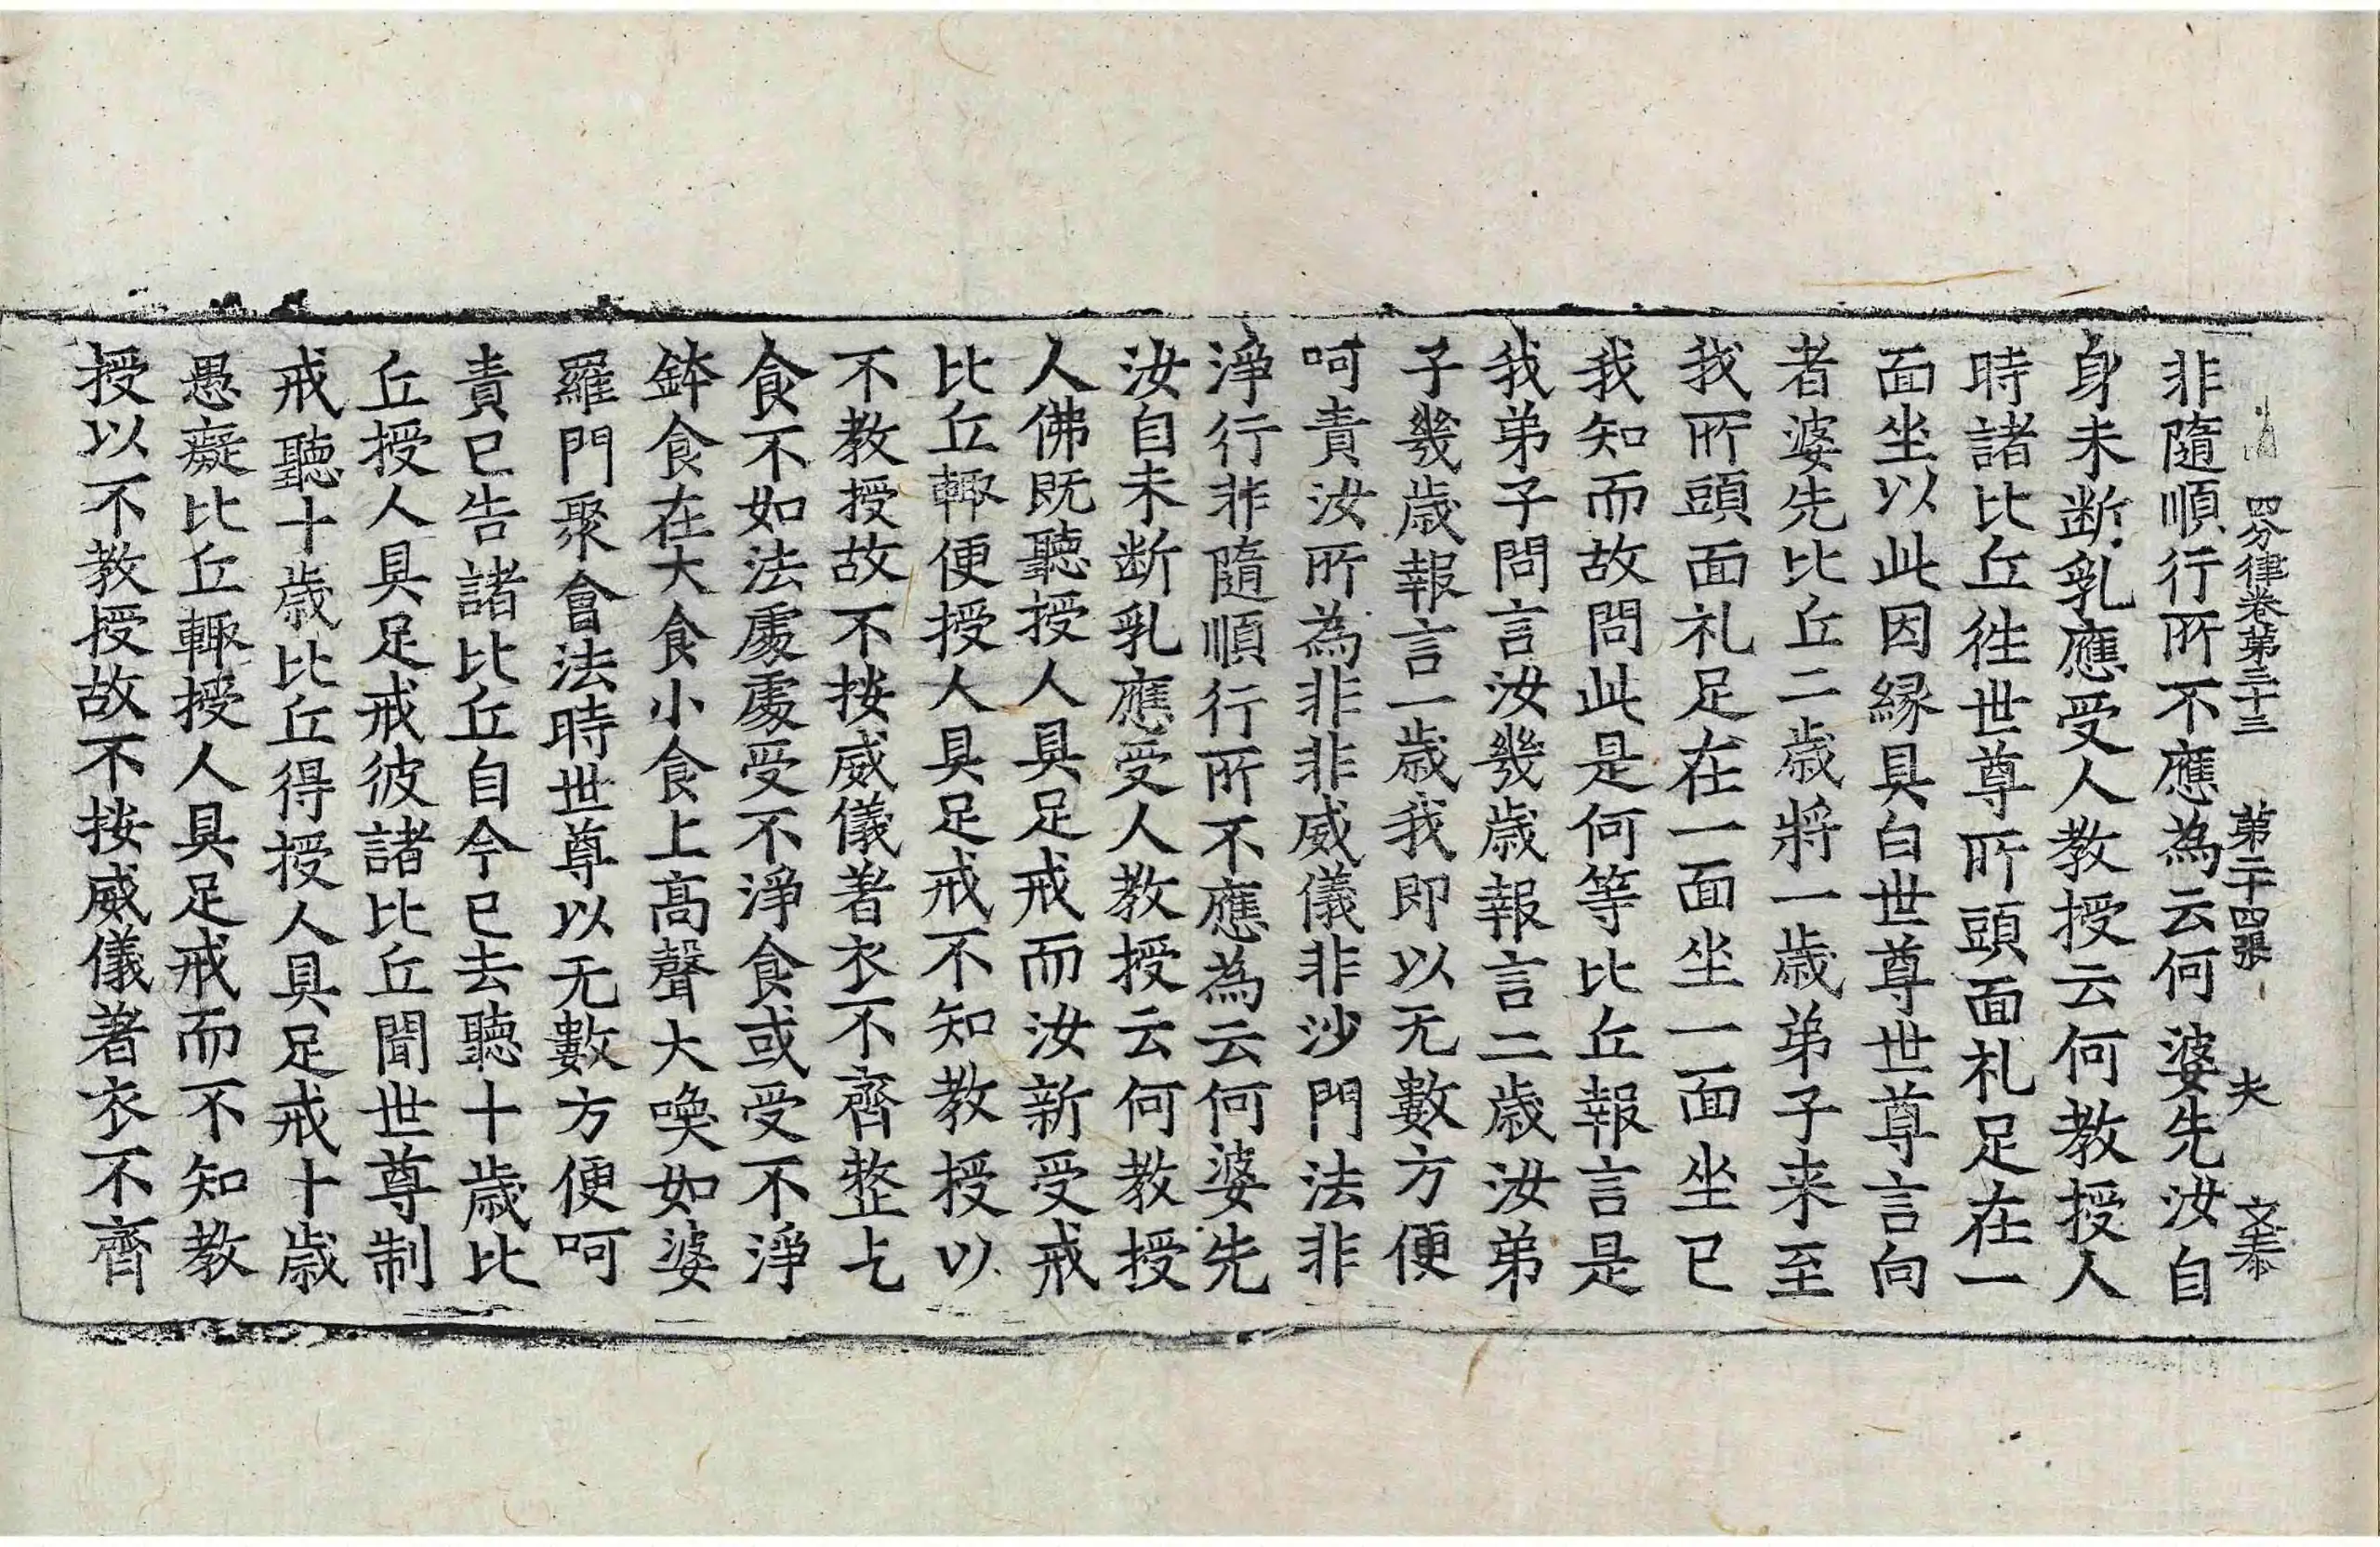 四分律卷第三十三 第二十四張 夫
非隨順行所不應為云何婆先汝自
身未断乳應受人教授云何教授人
時諸比丘徃世尊所頭面礼足在一
面坐以此因縁具白世尊世尊言向
者婆先比丘二歳將一歳弟子来至
我所頭面礼足在一面坐一面坐已
我知而故問此是何等比丘報言是
我弟子問言汝幾歳報言二歳汝弟
子幾歳報言一歳我即以无數方便
呵責汝所為非非威儀非沙門法非
淨行非隨順行所不應為云何婆先
汝自未断乳應受人教授云何教授
人佛既聽授人具足戒而汝新受戒
比丘輙便授人具足戒不知教授以
不教授故不按威儀著衣不齊整乞
食不如法處處受不淨食或受不淨
鉢食在大食小食上高聲大喚如婆
羅門聚會法時世尊以无數方便呵
責已告諸比丘自今已去聽十歳比
丘授人具足戒彼諸比丘聞世尊制
戒聽十歳比丘得授人具足戒十歳
愚癡比丘輙授人具足戒而不知教
授以不教授故不按威儀著衣不齊